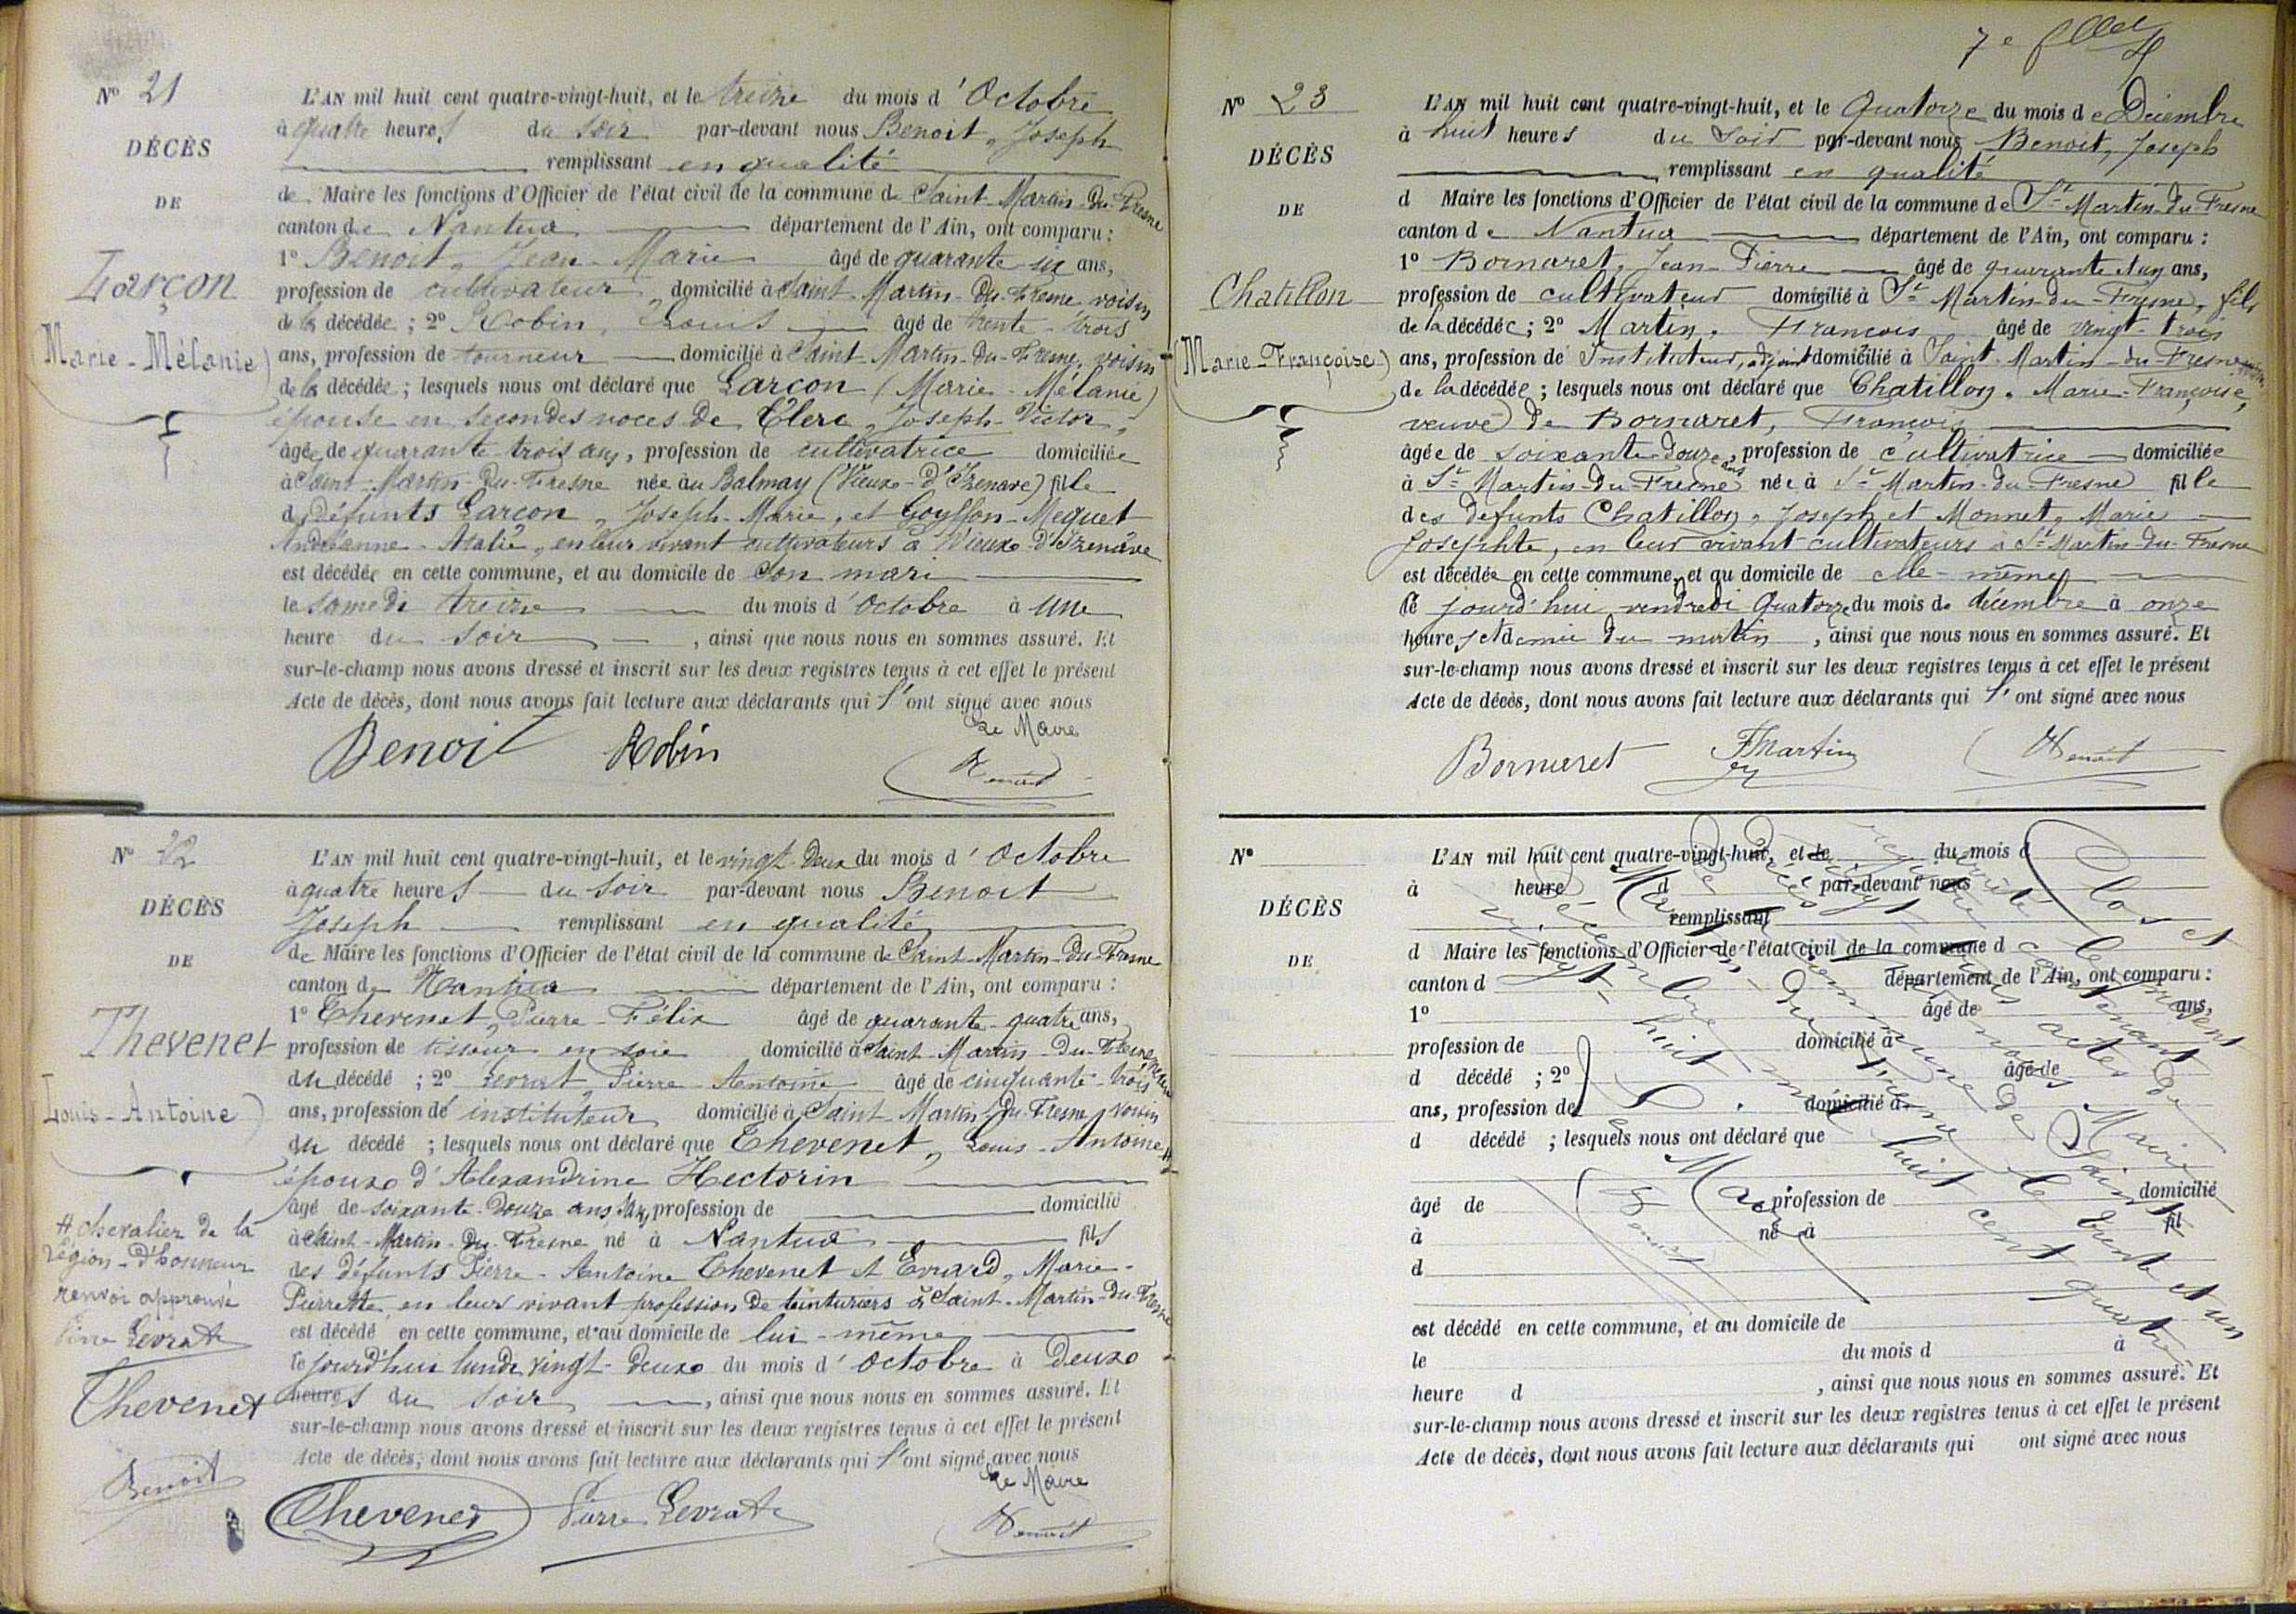 N° 21
DÉCÈS
DE
Larçon
Marie-Mélanie)
L'AN mil huit cent quatre-vingt-huit, et le treize du mois d'Octobre
à quatre heures du soir par-devant nous Benoit, Joseph
remplissant en qualité
de Maire les fonctions d'Officier de l'état civil de la commune de Saint-Martin-du-Fresne
canton de Nantua département de l'Ain, ont comparu :
1° Benoit, Jean-Marie âgé de quarante-six ans,
profession de cultivateur domicilié à Saint-Martin-du-Fresne voisin
de la décédée ; 2° Robin, Louis âgé de trente-trois
ans, profession de tourneur domicilié à Saint-Martin-du-Fresne, voisin
de la décédée ; lesquels nous ont déclaré que Larçon (Marie-Mélanie)
épouse en secondes noces de Clerc, Joseph-Victor,
âgée de quarante-trois ans, profession de cultivatrice domiciliée
à Saint-Martin-du-Fresne née au Balmay (Vieux-d'Izenave) fille
des défunts Larçon, Joseph-Marie, et Goyffon-Mequet
Andréanne-Atalie, en leur vivant cultivateurs à Vieux-d'Izenave
est décédée en cette commune, et au domicile de son mari
le samedi treize du mois d'octobre à une
heure du soir, ainsi que nous nous en sommes assuré. Et
sur-le-champ nous avons dressé et inscrit sur les deux registres tenus à cet effet le présent
Acte de décès, dont nous avons fait lecture aux déclarants qui l'ont signé avec nous
Le Maire
Benoit Robin Benoit
N° 22
DÉCÈS
DE
Thevenet
Louis-Antoine)
# chevalier de la
Légion-d'honneur
renvoi approuvé
Pierre Levrat
Thevenet
Benoit
L'AN mil huit cent quatre-vingt-huit, et le vingt-deux du mois d'Octobre
à quatre heures du soir par-devant nous Benoit
Joseph remplissant en qualité
de Maire les fonctions d'Officier de l'état civil de la commune de Saint-Martin-du-Fresne
canton de Nantua département de l'Ain, ont comparu :
1° Thevenet, Pierre-Félix âgé de quarante-quatre ans,
profession de tisseur en soie domicilié à Saint-Martin-du-Fresne, neveu
du décédé ; 2° Levrat, Pierre Antoine âgé de cinquante-trois
ans, profession de instituteur domicilié à Saint-Martin-du-Fresne, voisin
du décédé ; lesquels nous ont déclaré que Thevenet, Louis-Antoine #
époux d'Alexandrine Hectorin
âgé de soixante-douze ans, profession de domicilié
à Saint-Martin-du-Fresne né à Nantua fils
des défunts Pierre-Antoine Thevenet et Evrard, Marie-
Pierrette en leur vivant profession de teinturiers à Saint-Martin-du-Fresne
est décédé en cette commune, et au domicile de lui-même
le jourd'hui lundi vingt-deux du mois d'octobre à deux
heures du soir, ainsi que nous nous en sommes assuré. Et
sur-le-champ nous avons dressé et inscrit sur les deux registres tenus à cet effet le présent
Acte de décès, dont nous avons fait lecture aux déclarants qui l'ont signé avec nous
Le Maire
Thevenet Pierre Levrat Benoit
7e
N° 23
DÉCÈS
DE
Chatillon
(Marie-Françoise)
L'AN mil huit cent quatre-vingt-huit, et le Quatorze du mois de Décembre
à huit heures du soir par-devant nous Benoit, Joseph
remplissant en qualité
d Maire les fonctions d'Officier de l'état civil de la commune de St Martin-du-Fresne
canton de Nantua département de l'Ain, ont comparu :
1° Bornaret, Jean-Pierre âgé de quarante deux ans,
profession de cultivateur domicilié à St Martin-du-Fresne, fils
de la décédée ; 2° Martin, François âgé de vingt-trois
ans, profession de Instituteur, adjoint domicilié à Saint-Martin-du-Fresne
de la décédée ; lesquels nous ont déclaré que Chatillon, Marie-Françoise,
veuve de Bornaret, François
âgée de soixante-douze ans, profession de cultivatrice domiciliée
à St Martin-du-Fresne née à St Martin-du-Fresne fille
des défunts Chatillon, Joseph et Monnet, Marie
Josephte, en leur vivant cultivateurs à St Martin-du-Fresne
est décédée en cette commune, et au domicile de elle-même
le jourd'hui vendredi Quatorze du mois de décembre à onze
heures et demie du matin, ainsi que nous nous en sommes assuré. Et
sur-le-champ nous avons dressé et inscrit sur les deux registres tenus à cet effet le présent
Acte de décès, dont nous avons fait lecture aux déclarants qui l'ont signé avec nous
Bornaret F Martin Benoit
N°
DÉCÈS
DE
L'AN mil huit cent quatre-vingt-huit, et le du mois d
à heure d par-devant nous
remplissant
d Maire les fonctions d'Officier de l'état civil de la commune d
canton d département de l'Ain, ont comparu :
1° âgé de ans,
profession de domicilié à
d décédé ; 2° âgé de
ans, profession de domicilié à
d décédé ; lesquels nous ont déclaré que
âgé de profession de domicilié
à né à fil
d
est décédé en cette commune, et au domicile de
le du mois d à
heure d , ainsi que nous nous en sommes assuré. Et
sur-le-champ nous avons dressé et inscrit sur les deux registres tenus à cet effet le présent
Acte de décès, dont nous avons fait lecture aux déclarants qui ont signé avec nous
Clos et le présent
contenant
actes de
décès par nous Maire
de la commune de Saint-
Martin-du-Fresne le trente et un
Décembre mil huit cent quatre
vingt-huit
Le Maire
Benoit